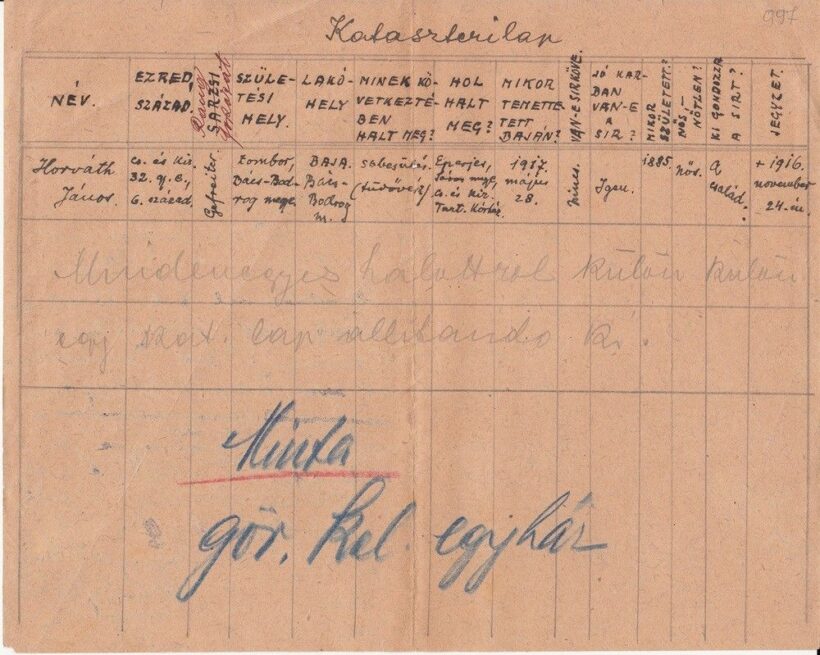 997
Kataszterilap
NÉV.
EZRED,
SZÁZAD.
Rang
SARZSI
fokozat
SZÜLE-
TÉSI
HELY.
LAKÓ-
HELY
MINEK KÖ-
VETKEZTÉ-
BEN
HALT MEG?
HOL
HALT
MEG?
MIKOR
TEMETTE-
TETT
BAJÁN?
VAN-E SIRKÖVE.
JÓ KAR-
BAN
VAN-E
A
SIR?
MIKOR
SZÜLETETT?
NÖS-
NÖTLEN?
KI GONDOZZA
A SIRT?
JEGYZET
Horváth
János.
cs. és kir.
32. gy. e.,
6. század.
Gefreiter.
Zombor,
Bács-Bod-
rog megye
BAJA.
Bács-
Bodrog
m.
sebesülés.
(tüdövész)
Eperjes,
Sáros mgye,
cs. és kir.
Tart. Kórház.
1917.
május
28.
nincs.
Igen.
1885.
nös.
a
család.
+ 1916.
november
24-én.
Mindenegyes halottrol külön külön
egy kat. lap állitando ki.
Minta
gör. kel. egyház